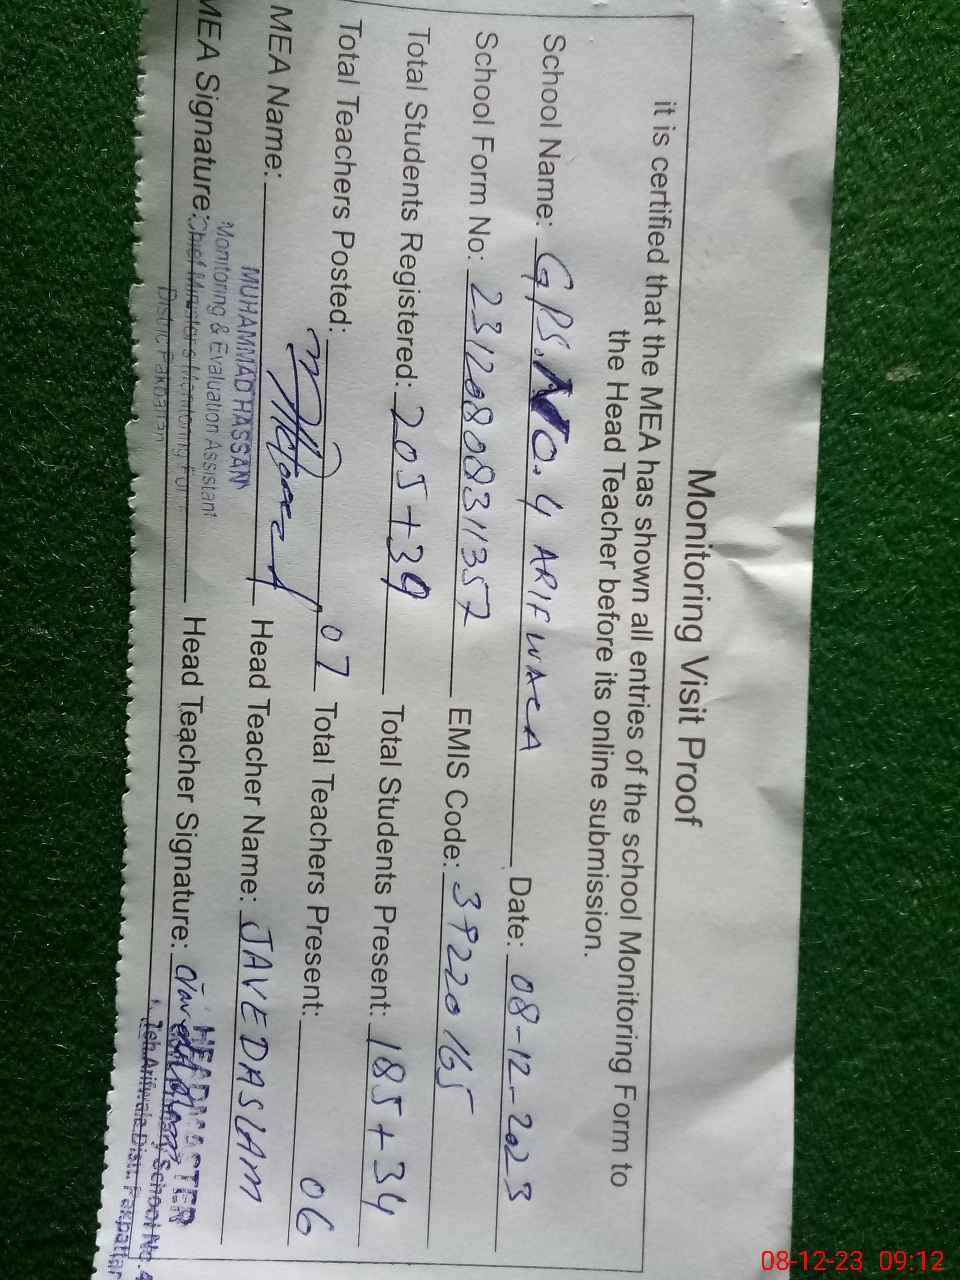 Monitoring Visit Proof
it is certified that the MEA has shown all entries of the school Monitoring Form to
the Head Teacher before its online submission.
School Name: GPS. NO. 4 ARIFWALA Date: 08-12-2023
School Form No: 2312080831357 EMIS Code: 39220165
Total Students Registered: 205+39 Total Students Present: 185+34
Total Teachers Posted: 07 Total Teachers Present: 06
MEA Name: Head Teacher Name: JAVED ASLAM
MUHAMMAD HASSAN
Monitoring & Evaluation Assistant
MEA Signature: Chief Minister's Monitoring For Head Teacher Signature: Javed Aslam
Distric Pakpattan
HEADMASTER
School No. 4
Teh. Arifwala Distt. Pakpattan
08-12-23 09:12